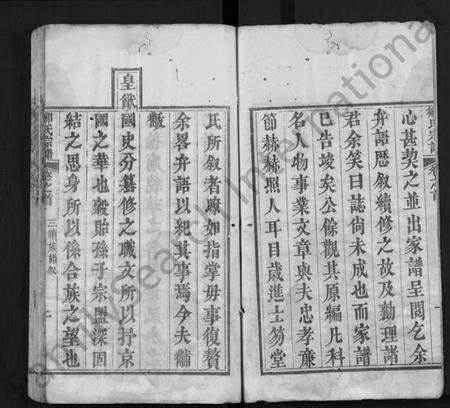 心甚契之並出家譜呈閱乞余
弁語歷叙續修之故及勷理諸
君余笑曰誌尚未成也而家譜
已告竣矣公餘觀其原編凡科
名人物事業文章與夫忠孝廉
節赫赫照人耳目歲進士笏堂
氏所叙者瞭如指掌毋事復贅
余畧弁語以紀其事焉今夫黼
黻
皇猷國史分纂修之職文所以抒京
國之華也穀貽孫子宗盟深固
結之思身所以係合族之望也
氏宗譜
卷之首
三補族譜叙
Family Search International